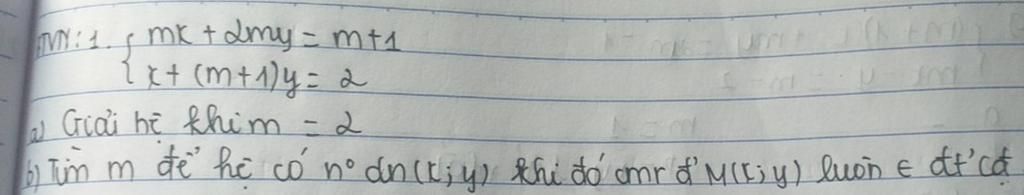 BTVN: 1. { mx + 2my = m+1
{ x + (m+1)y = 2
a) Giải hệ khi m = 2
b) Tìm m để hệ có nº dn (x; y) khi đó cmr đ' M(x; y) luôn ∈ đt' cđ